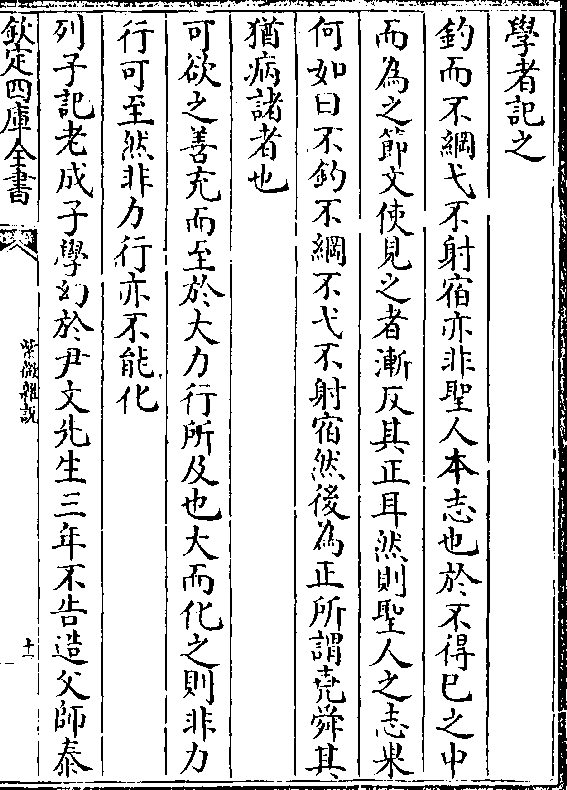 學者記之
釣而不綱弋不射宿亦非聖人本志也於不得已之中
而為之節文使見之者漸反其正耳然則聖人之志果
何如曰不釣不綱不弋不射宿然後為正所謂堯舜其
猶病諸者也
可欲之善充而至於大力行所及也大而化之則非力
行可至然非力行亦不能化
列子記老成子學幻於尹文先生三年不告造父師泰
欽定四庫全書
紫微雜説
十一